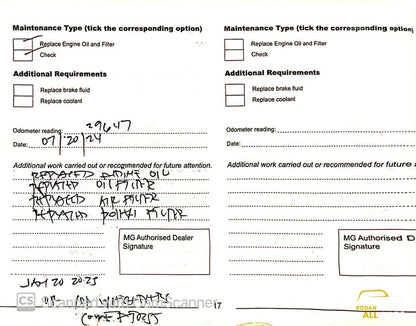 Maintenance Type (tick the corresponding option)
Replace Engine Oil and Filter
Check
Additional Requirements
Replace brake fluid
Replace coolant
Odometer reading: 29647
Date: 07/20/24
Additional work carried out or recommended for future attention.
REPLACED ENGINE OIL
REPLACED OIL FILTER
REPLACED AIR FILTER
REPLACED POLLEN FILTER
MG Authorised Dealer
Signature
JAN 20 2025
OR
CS
17
Maintenance Type (tick the corresponding option)
Replace Engine Oil and Filter
Check
Additional Requirements
Replace brake fluid
Replace coolant
Odometer reading:
Date:
Additional work carried out or recommended for future a
MG Authorised D
Signature
KODAK
ALL